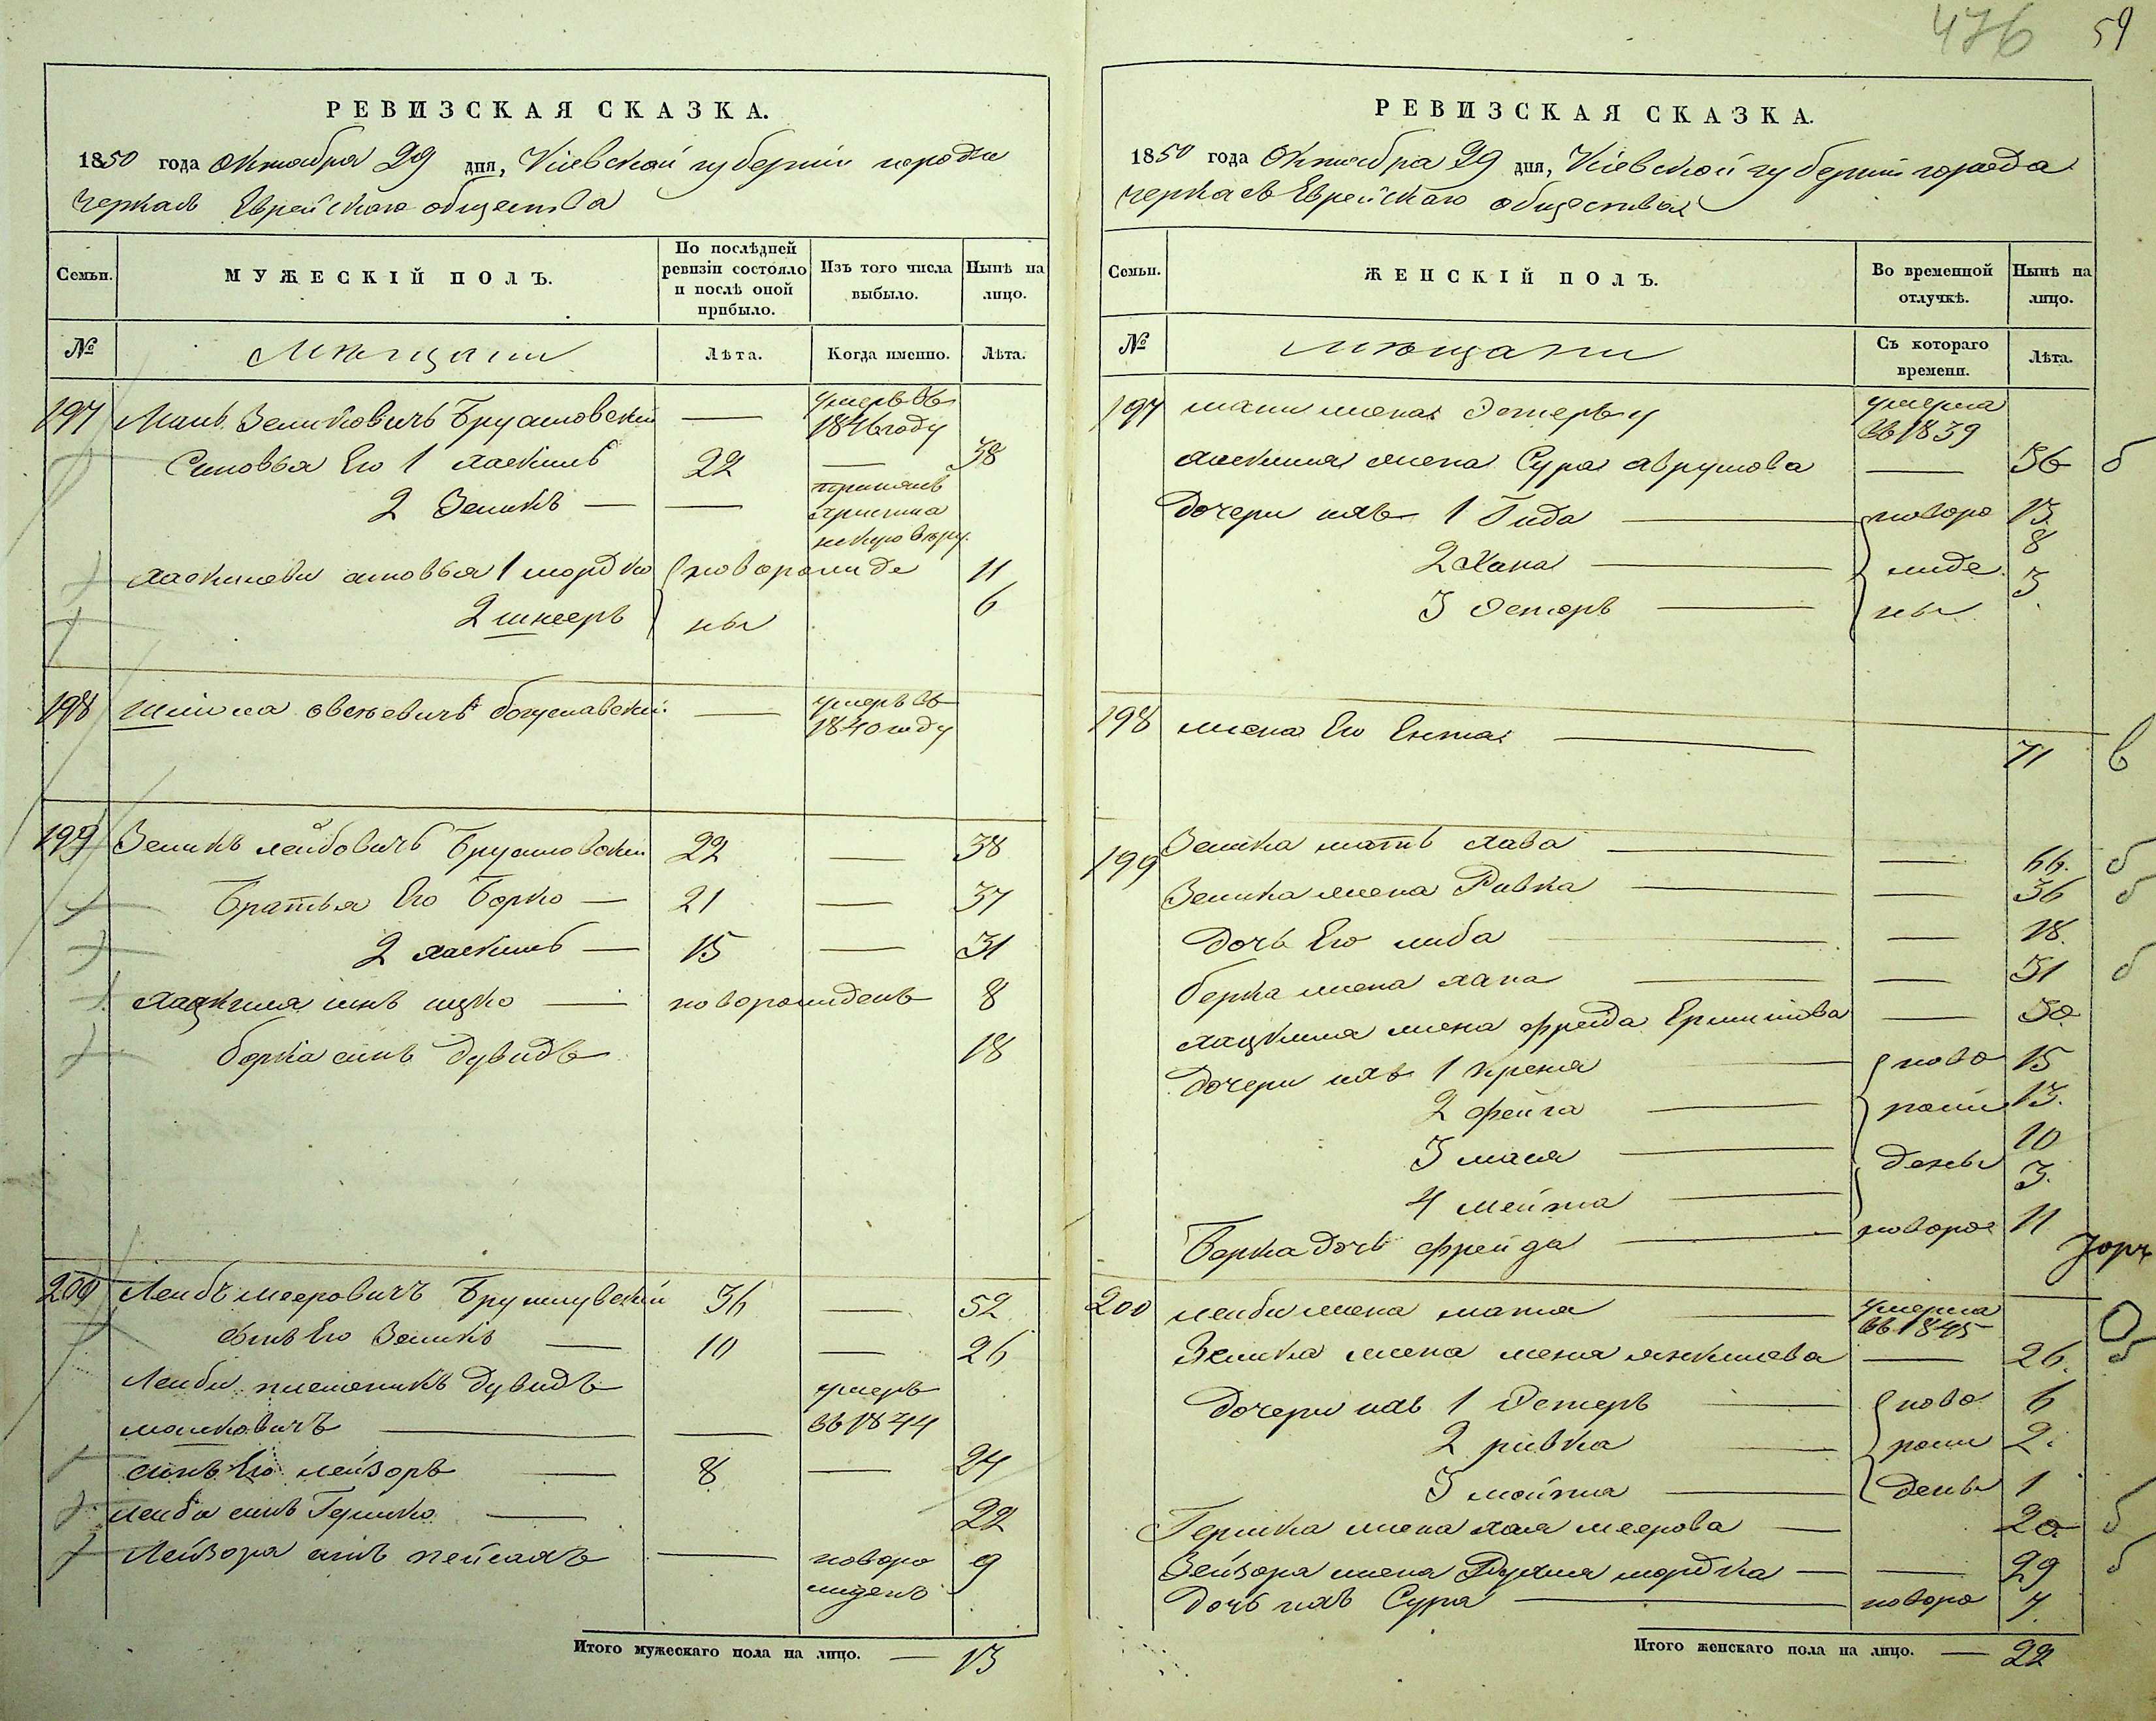 476 59
РЕВИЗСКАЯ СКАЗКА.
1850 года Октября 29 дня, Кіевской губерніи города
Черкасъ Еврейскаго общества
Семьи.
МУЖЕСКІЙ ПОЛЪ.
По послѣдней
ревизіи состояло
и послѣ оной
прибыло.
Изъ того числа
выбыло.
Нынѣ на
лицо.
№
мѣщани
Лѣта.
Когда именно.
Лѣта.
197 Зельковичъ — умеръ въ
1846 году
Синовья Его 1 Хаскиль 22 — 38
2 Зеликъ — —
Хаскилеви синовья 1 мордко новорожде 11
2 шнееръ ны 6
198 — умеръ въ
1840 году
199 Зеликъ лейбовичъ 22 — 38
Братья Его Борко — 21 — 37
2 Хаскиль — 15 — 31
Хацкиля синъ ицко — новорожденъ 8
борка синъ Дувидъ 18
200 Лейбъ мееровичъ 36 — 52
синъ Его Зеликъ — 10 — 26
Лейби племеникъ Дувидъ умеръ
мошковичъ — — въ 1844
синъ Его лейзоръ — 8 — 24
лейби синъ Гершко — 22
Лейзора синъ пейсахъ — новоро 9
жденъ
Итого мужескаго пола на лицо. — 13
РЕВИЗСКАЯ СКАЗКА.
1850 года Октября 29 дня, Кіевской губерніи города
Черкасъ Еврейскаго общества
Семьи.
ЖЕНСКІЙ ПОЛЪ.
Во временной
отлучкѣ.
Нынѣ на
лицо.
№
мѣщани
Съ котораго
времени.
Лѣта.
197 жена умерла
въ 1839
Хаскиля жена Сура аврумова — 36 б
Дочери ихъ 1 Гида — новоро 13
2 Хана — жде 8
3 Естеръ — ны 3
198 жена Его Ента — 71 в
199 Зелика мать Хава — — 66. б
Зелика жена Ривка — — 36 б
Дочь Его либа — — 18.
берка жена хана — — 31 б
хацкиля жена фрейда — 30
Дочери ихъ 1 крейня — ново 15
2 фейга — рож 13.
3 мася — дены 10
4 мейта — 3.
Борка дочь фрейда — новоро 11
200 лейби жена — умерла
въ 1845
Зелика жена — 26. б
Дочери ихъ 1 Естеръ — ново 6
2 ривка — рож 2.
3 мейта — дены 1
Гершка жена хая меерова — 20 б
жена мордка — — 29 б
Дочь ихъ Сура — новоро 7.
Итого женскаго пола на лицо. — 22